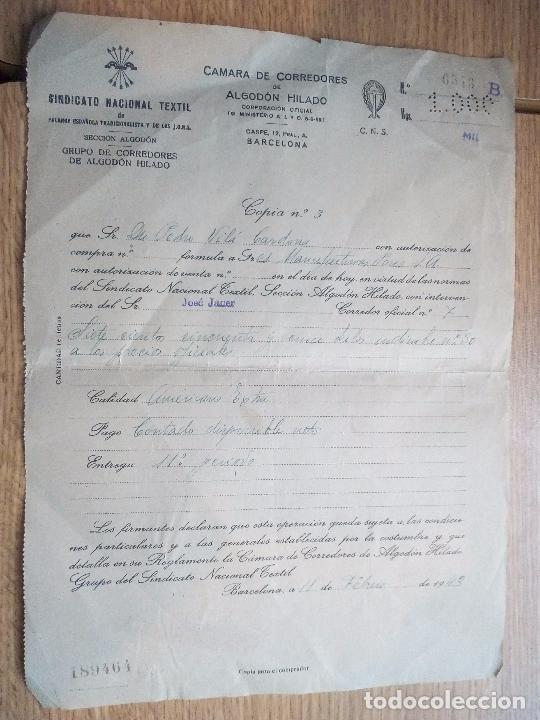 SINDICATO NACIONAL TEXTIL
de
FALANGE ESPAÑOLA TRADICIONALISTA Y DE LAS J.O.N.S.
SECCIÓN ALGODÓN
GRUPO DE CORREDORES
DE ALGODÓN HILADO
CAMARA DE CORREDORES
DE
ALGODÓN HILADO
CORPORACIÓN OFICIAL
BARCELONA
C. N. S.
N.º 6343 B
1.000
MIL
Copia n.º 3
que Sr. De Pedro Vilá Cardona con autorización de
compra n.º formula a Sres Manufacturas S/A
con autorización de venta n.º en el día de hoy, en virtud de las normas
del Sindicato Nacional Textil, Sección Algodón Hilado, con interven-
ción del Sr. José Janer Corredor oficial n.º 7
CANTIDAD (en letras)
Siete ciento cincuenta y cinco kilos nº 20
a los precios oficiales
Calidad Americano Extra
Pago Contado disponible neto
Entrega 11º periodo
Los firmantes declaran que esta operación queda sujeta a las condicio-
nes particulares y a las generales establecidas por la costumbre y que
detalla en su Reglamento la Cámara de Corredores de Algodón Hilado
Grupo del Sindicato Nacional Textil
Barcelona, a 11 de Febrero de 1943
189464
Copia para el comprador
todocoleccion
todocoleccion.net